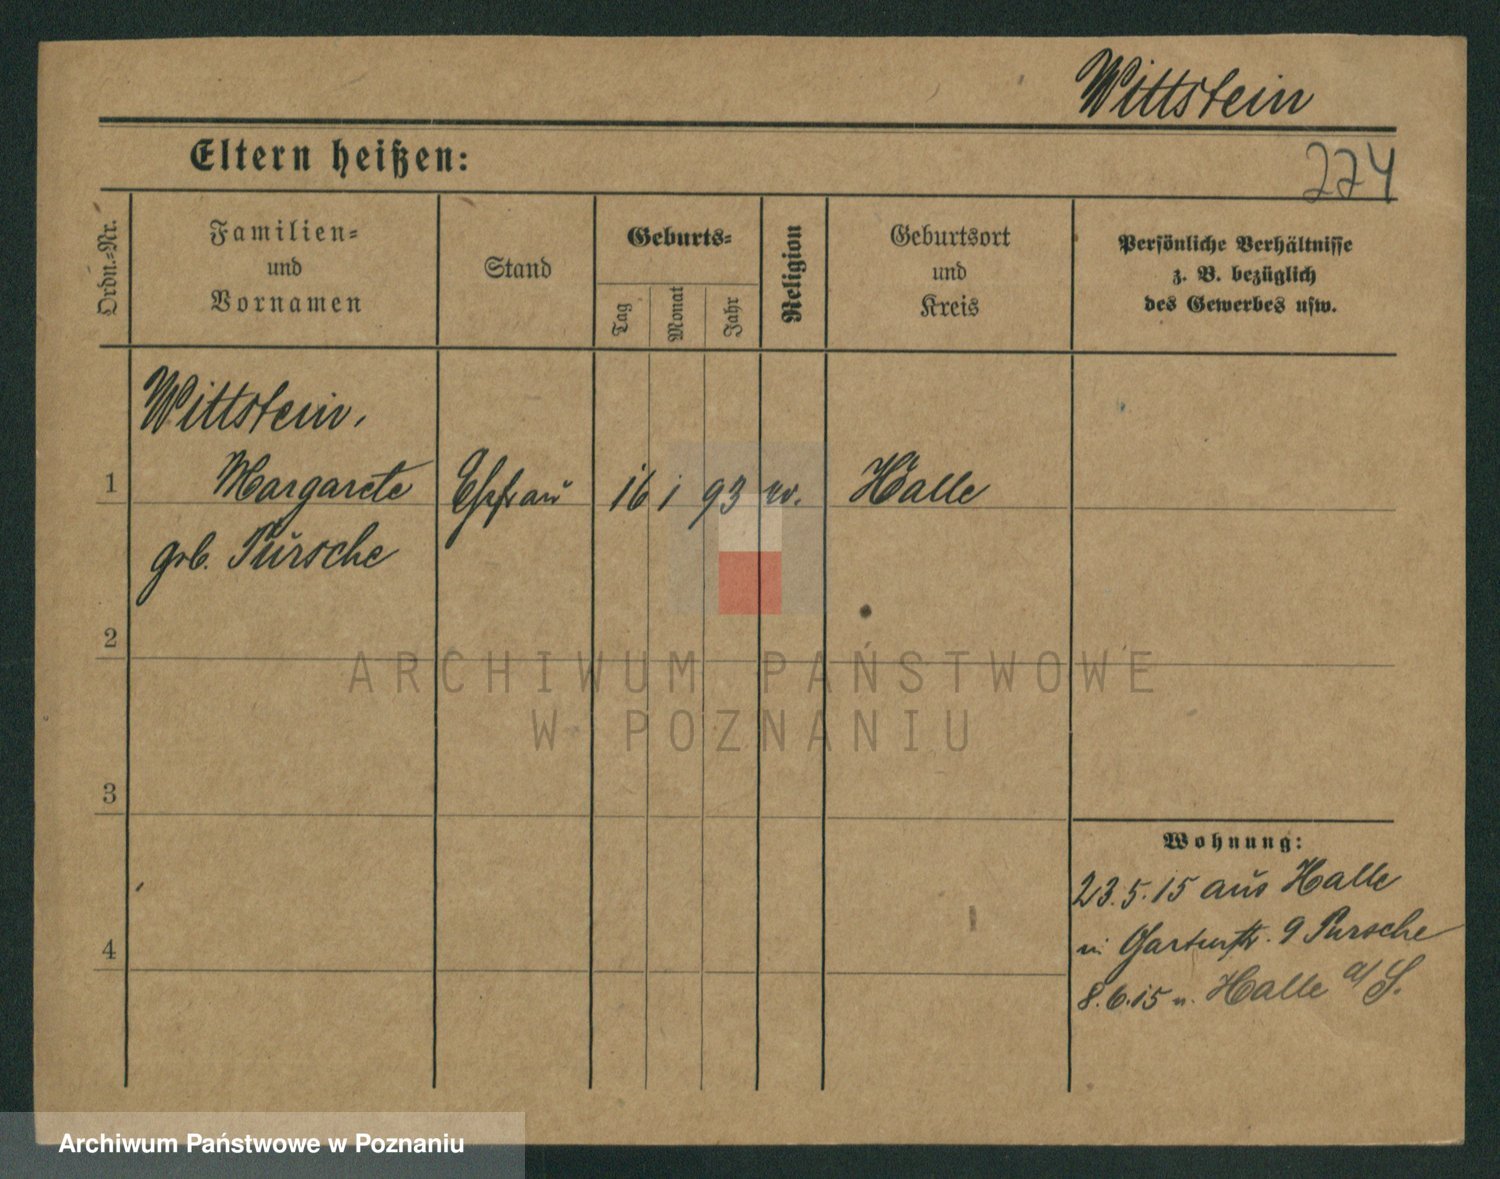 Wittstein
Eltern heißen:
274
Ordn.-Nr.
Familien-
und
Vornamen
Stand
Geburts-
Tag
Monat
Jahr
Religion
Geburtsort
und
Kreis
Persönliche Verhältnisse
z. B. bezüglich
des Gewerbes usw.
Wittstein,
1 Margarete Ehefrau 16 1 93 ev. Halle
geb. Pursche
2
ARCHIWUM PAŃSTWOWE
W POZNANIU
3
Wohnung:
23.5.15 aus Halle
in Gartenstr. 9 Pursche
4
8.6.15 n. Halle a/S.
Archiwum Państwowe w Poznaniu